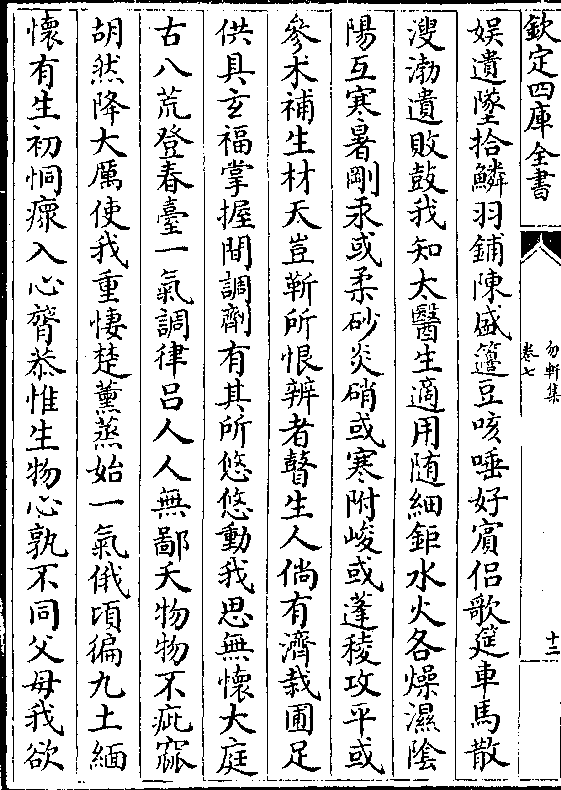 欽定四庫全書
勿軒集
卷七
十二
娯遺墜拾鱗羽鋪陳盛籩豆咳唾好賓侣歌筵車馬散
溲渤遺敗鼓我知太醫生適用随細鉅水火各燥濕隂
陽互寒暑剛汞或柔砂炎硝或寒附峻或蓬稜攻平或
參术補生材天豈靳所恨辨者瞽生人倘有濟栽圃足
供具玄福掌握間調劑有其所悠悠動我思無懷大庭
古八荒登春臺一氣調律吕人人無鄙夭物物不疵窳
胡然降大厲使我重悽楚薫蒸始一氣俄頃徧九土緬
懷有生初恫瘝入心膂恭惟生物心孰不同父母我欲